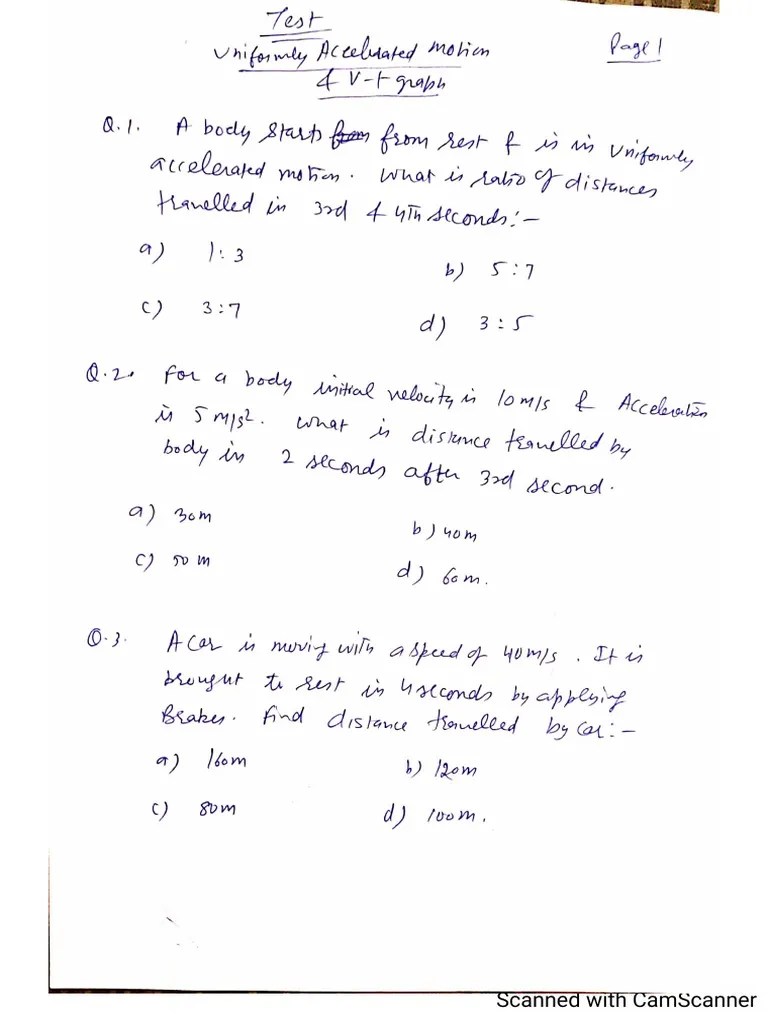 Test
Uniformly Accelerated Motion
& V-t graph
Page 1
Q.1. A body starts from rest & is in Uniformly
accelerated motion. What is ratio of distances
travelled in 3rd & 4th seconds:-
a) 1:3
b) 5:7
c) 3:7
d) 3:5
Q.2. For a body initial velocity is 10 m/s & Acceleration
is 5 m/s2. What is distance travelled by
body in 2 seconds after 3rd second.
a) 30m
b) 40m
c) 50m
d) 60m.
Q.3. A Car is moving with a speed of 40 m/s. It is
brought to rest in 4 seconds by applying
Brakes. Find distance travelled by Car:-
a) 160m
b) 120m
c) 80m
d) 100m.
Scanned with CamScanner